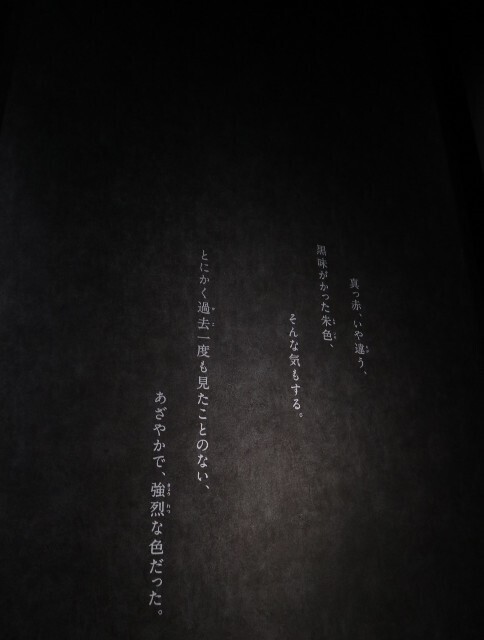 真っ赤、いや違う、
黒味がかった朱色、
そんな気もする。
とにかく過去一度も見たことのない、
あざやかで、強烈な色だった。